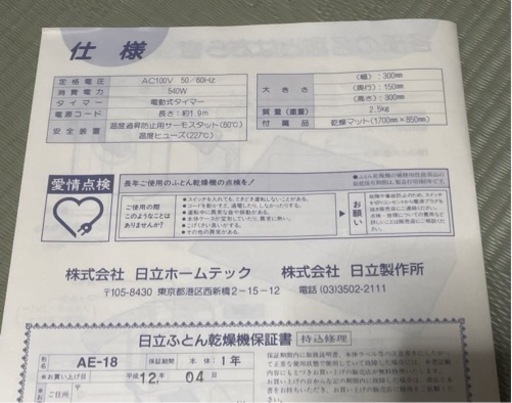 仕様
定格電圧 AC100V 50/60Hz
消費電力 540W
タイマー 電動式タイマー
電源コード 長さ:約1.9m
安全装置 温度過昇防止用サーモスタット(60℃)
温度ヒューズ(227℃)
大きさ (幅):300mm
(奥行):150mm
(高さ):300mm
質量(重量) 2.5kg
付属品 乾燥マット(1700mm×850mm)
愛情点検
長年ご使用のふとん乾燥機の点検を!
ご使用の際
このようなことは
ありませんか?
●スイッチを入れても、ときどき運転しないことがある。
●コードを動かすと、通電したり、しなかったりする。
●運転中に異常な音や振動がある。
●こげくさい臭いがする。
●その他の異常がある。
お願い
株式会社 日立ホームテック 株式会社 日立製作所
〒105-8430 東京都港区西新橋2-15-12 電話(03)3502-2111
日立ふとん乾燥機保証書 持込修理
形名 AE-18 保証期間 本体:1年
※お買い上げ日 平成12年 04日
ご住所 〒